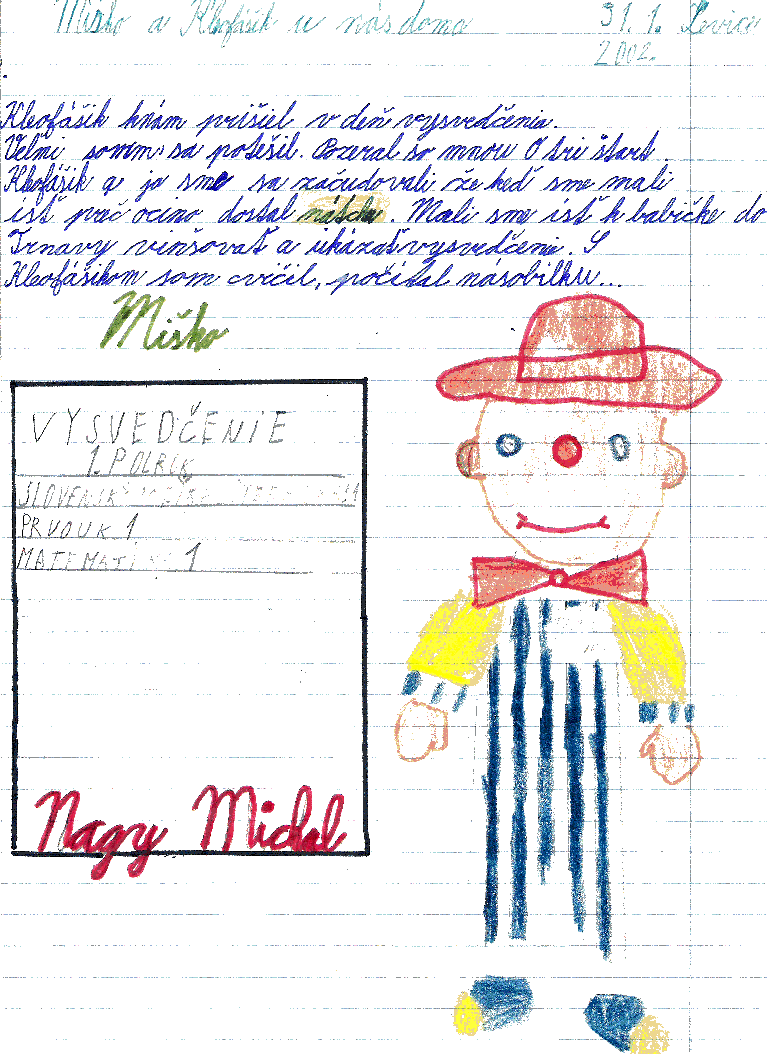 Miško a Kleofášik u nás doma 31. 1. Levice
2002.
Kleofášik knám prišiel v deň vysvedčenia.
Veľmi somm sa potešil. Pozeral so mnou O tri štart.
Kleofášik a ja sme sa začudovali že keď sme mali
ísť preč ocino dostal nátchu. Mali sme ísť k babičke do
Trnavy vinšovať a ukázať vysvedčenie. S
Kleofášikom som cvičil, počítal násobilku...
Miško
VYSVEDČENIE
1. POLROK
SLOVENSKÝ
PRVOUK 1
MATEMATI 1
Nagy Michal